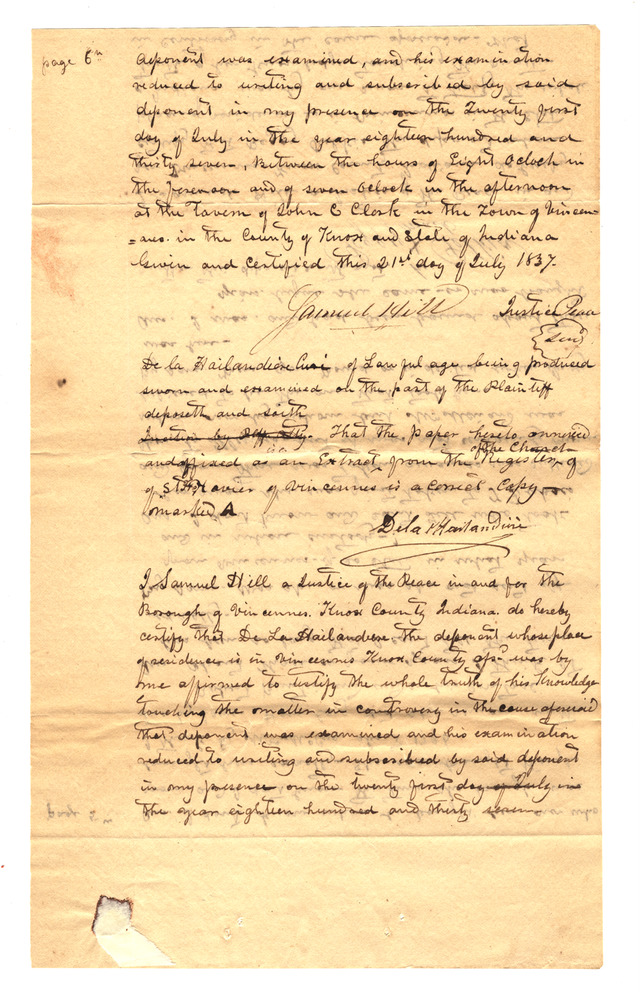 page 6th
deponent was examined, and his examination
reduced to writing and subscribed by said
deponent in my presence on the Twenty first
day of July in the year eighteen hundred and
thirty seven, Between the hours of Eight Oclock in
the forenoon and of seven Oclock in the afternoon
at the Tavern of John C Clark in the Town of Vincen=
=nes. in the County of Knox and State of Indiana
Given and certified this 21st day of July 1837.
Samuel Hill Justice Peace
Seal
De la Hailandière of Lawful age being produced
sworn and examined on the part of the Plaintiff
deposeth and saith
Question by Plff atty. That the paper hereto annexed
of the Chapel
and affixed is an Extract from the Register of
of St Xavier of Vincennes is a correct Copy
marked A
De la Hailandière
I Samuel Hill a Justice of the Peace in and for the
Borough of Vincennes. Knox County Indiana. do hereby
certify that De La Hailandiere the deponent whose place
of residence is in Vincennes Knox County afsd was by
me affirmed to testify the whole truth of his Knowledge
touching the matter in controversy in the cause aforesaid
that deponent was examined and his examination
reduced to writing and subscribed by said deponent
in my presence on the twenty first day of July in
the year eighteen hundred and thirty seven